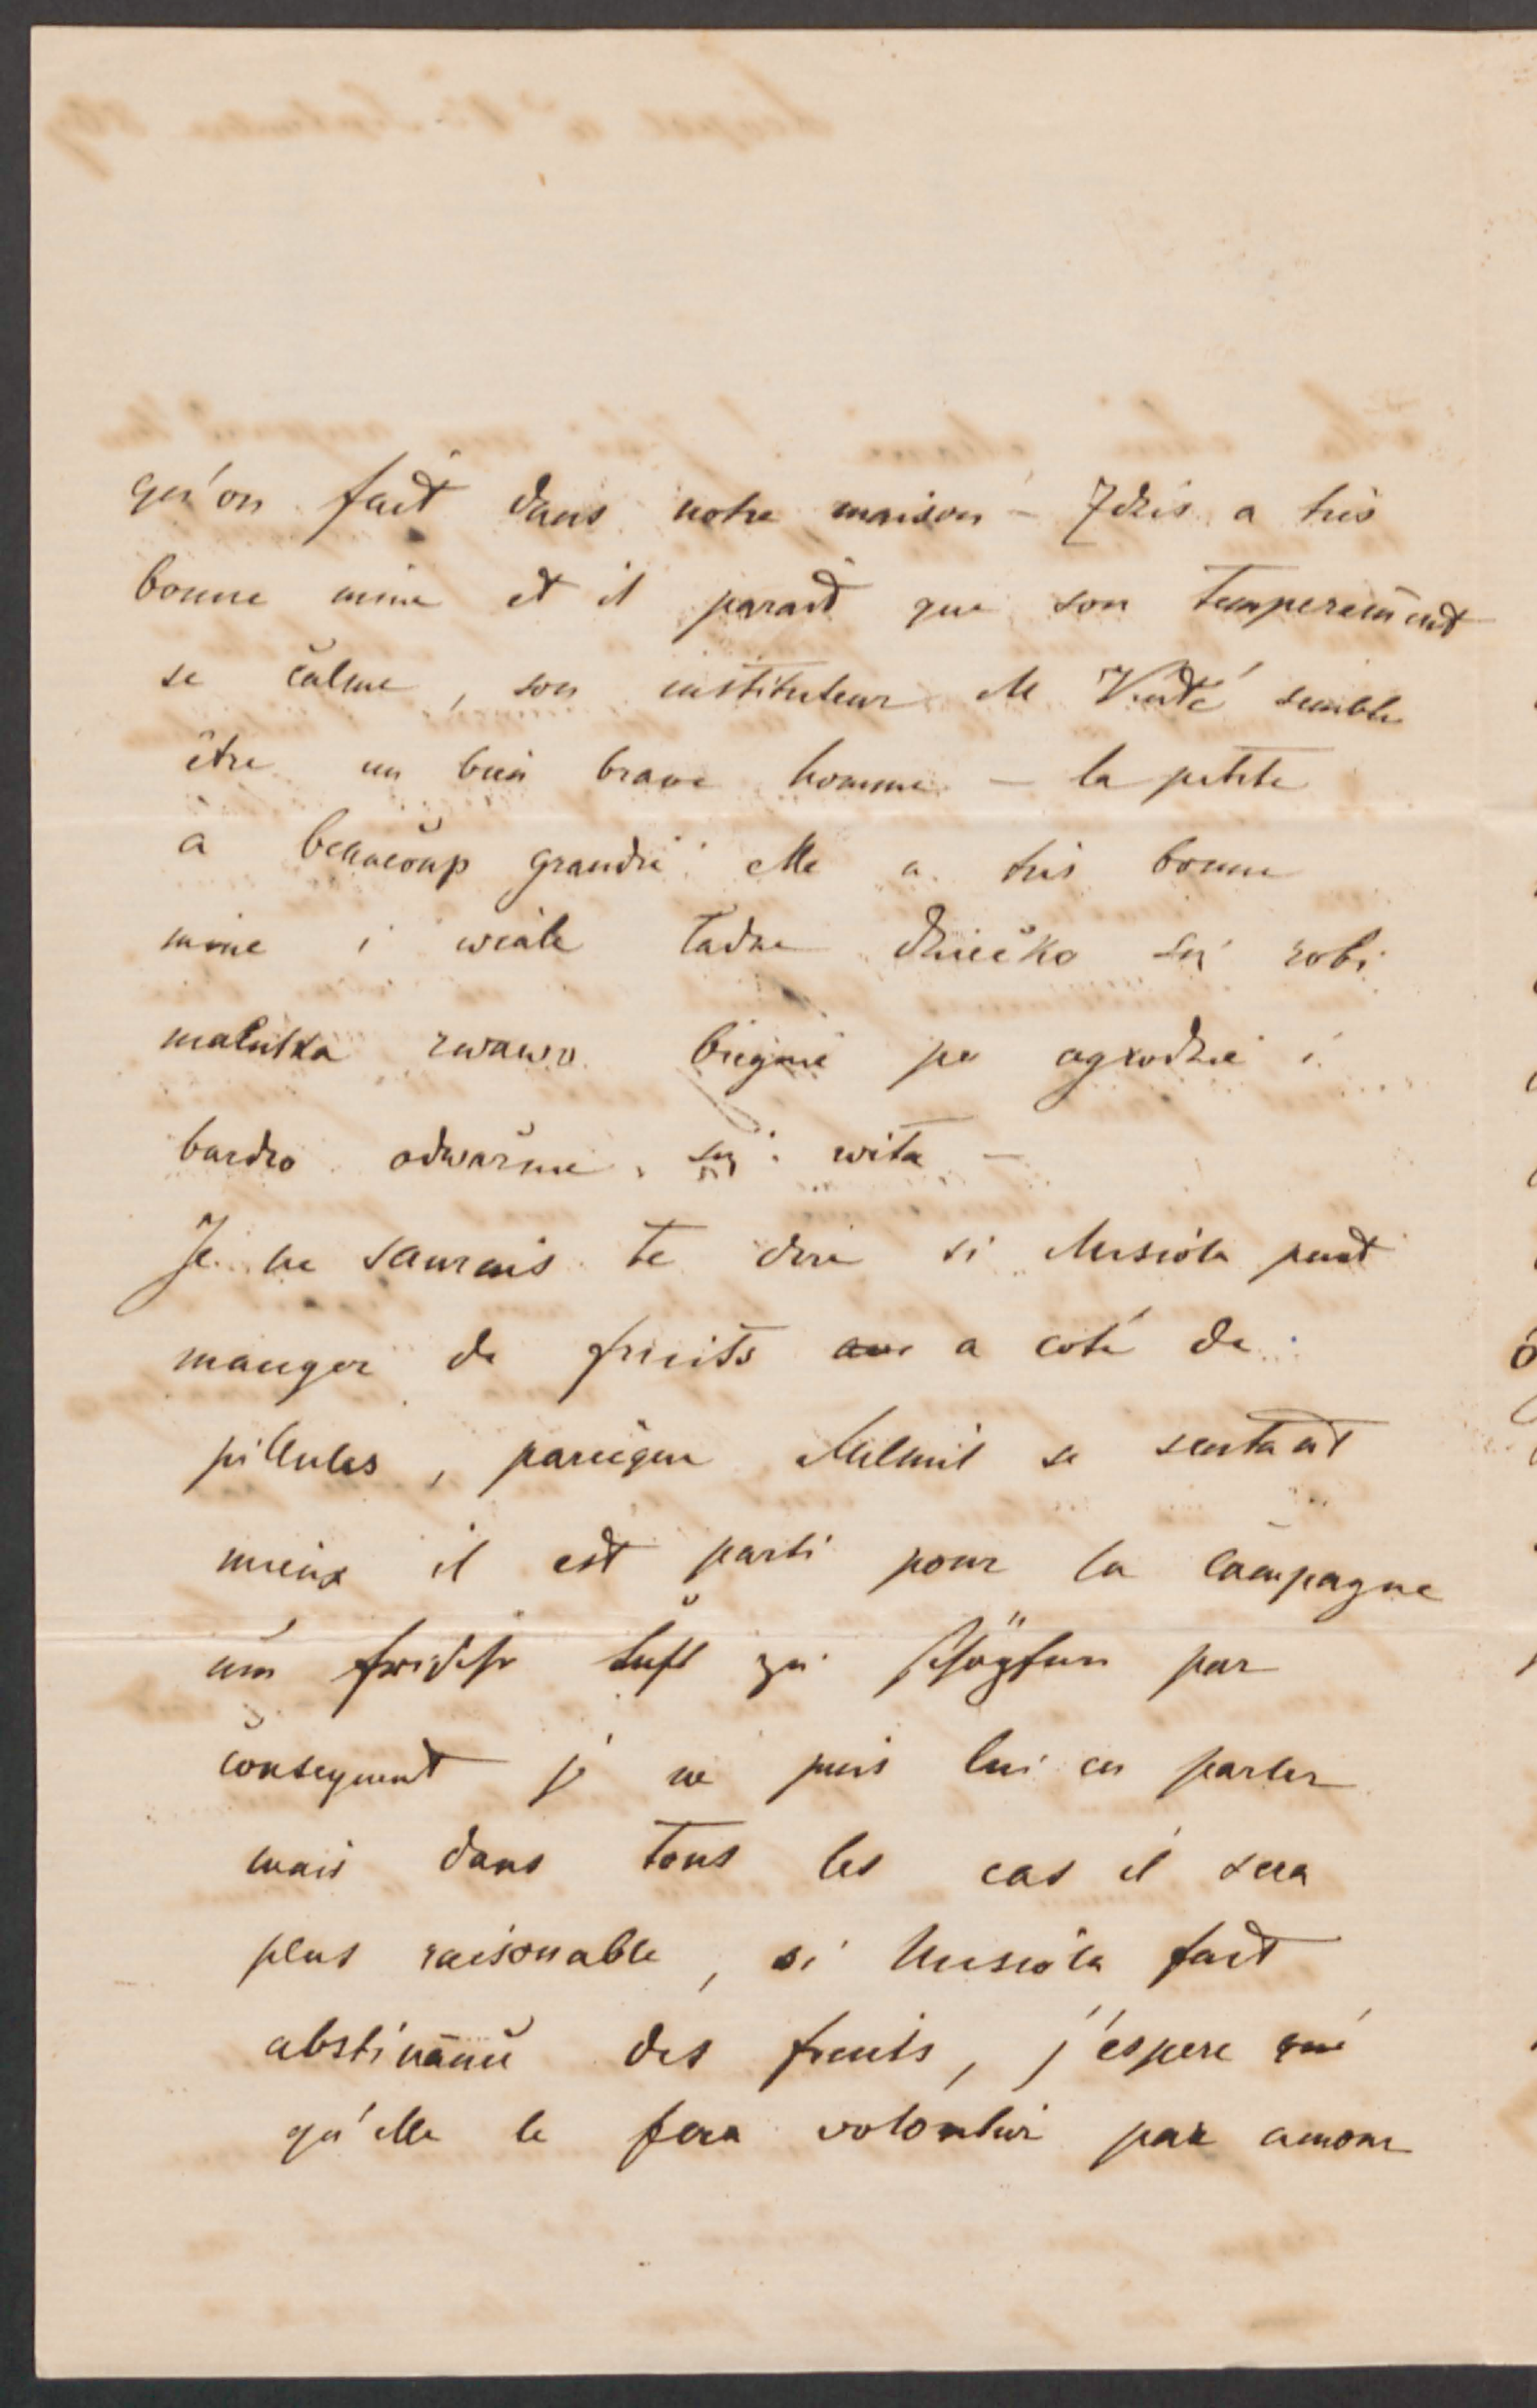 qu'on fait dans notre maison – Zdzis a très
bonne mine et il parait que son temperement
se calme, son instituteur M semble
être un bien brave homme – la petite
a beaucoup grandie elle a très bonne
mine i wcale ładne dziecko się robi
malutka zwawo biegnie po ogrodzie i
bardzo odważnie się wita –
Je ne saurais te dire si Musiola peut
manger de fruits a coté de
pillules, parceque se sentant
mieux il est parti pour la campagne
um frische Luft zu schöpfen par
consequent je ne puis lui en parler
mais dans tous les cas il sera
plus raisonable, si Musiola fait
abstinance des fruits, j'éspere que
qu'elle le fera volontier par amour